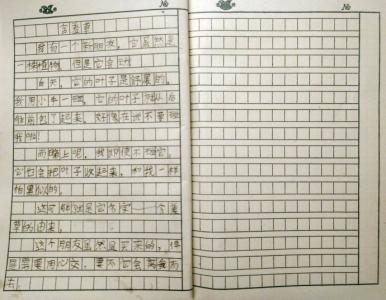 含羞草
我有一个新朋友，它虽然是
一棵植物，但是它会动。
白天，它的叶子是舒展的，
我用小手一碰，它的叶子就从后
往前包了起来，好像在说不要碰
我啦！
而晚上呢，我即使不碰它，
它也会把叶子收起来，和我一样
怕
这可能就是它名字——含羞
草的由来。
这个朋友虽然是买来的，但
是需要用心交，要不它会离我而
去。
№
№